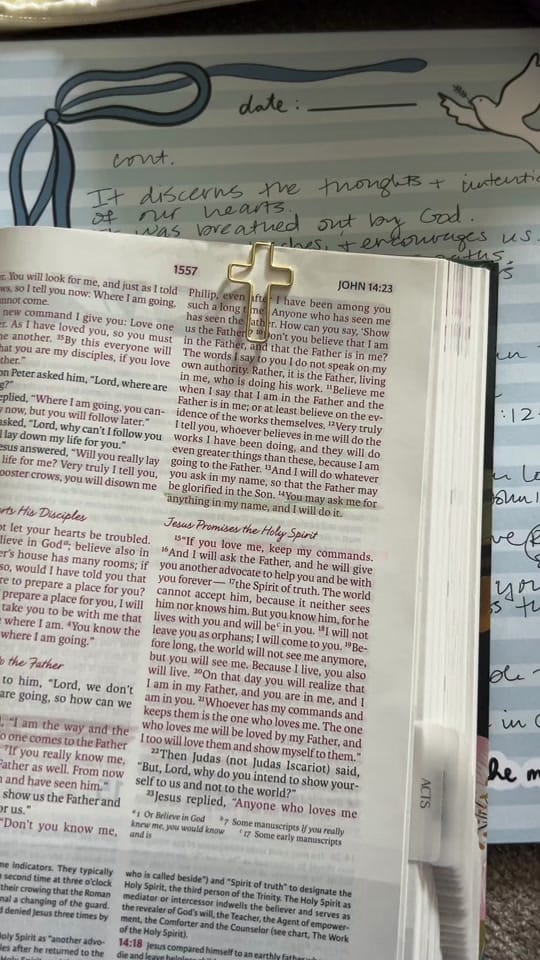 date:
cont.
It discerns the thoughts + intenti
of our hearts.
was breathed out by God.
ches, + encourages us.
1557
JOHN 14:23
r. You will look for me, and just as I told
ws, so I tell you now: Where I am going,
nnot come.
new command I give you: Love one
er. As I have loved you, so you must
ne another. 35By this everyone will
hat you are my disciples, if you love
ther."
on Peter asked him, "Lord, where are
g?"
eplied, "Where I am going, you can-
w now, but you will follow later."
asked, "Lord, why can't I follow you
l lay down my life for you."
esus answered, "Will you really lay
life for me? Very truly I tell you,
ooster crows, you will disown me
rts His Disciples
ot let your hearts be troubled.
lieve in Goda; believe also in
er's house has many rooms; if
so, would I have told you that
re to prepare a place for you?
prepare a place for you, I will
take you to be with me that
where I am. 4You know the
where I am going."
o the Father
to him, "Lord, we don't
are going, so how can we
, "I am the way and the
o one comes to the Father
7If you really know me,
Father as well. From now
m and have seen him."
show us the Father and
or us."
"Don't you know me,
Philip, even after I have been among you
such a long Anyone who has seen me
has seen the Father. How can you say, 'Show
us the Father 10Don't you believe that I am
in the Father, and that the Father is in me?
The words I say to you I do not speak on my
own authority. Rather, it is the Father, living
in me, who is doing his work. 11Believe me
when I say that I am in the Father and the
Father is in me; or at least believe on the ev-
idence of the works themselves. 12Very truly
I tell you, whoever believes in me will do the
works I have been doing, and they will do
even greater things than these, because I am
going to the Father. 13And I will do whatever
you ask in my name, so that the Father may
be glorified in the Son. 14You may ask me for
anything in my name, and I will do it.
Jesus Promises the Holy Spirit
15"If you love me, keep my commands.
16And I will ask the Father, and he will give
you another advocate to help you and be with
you forever— 17the Spirit of truth. The world
cannot accept him, because it neither sees
him nor knows him. But you know him, for he
lives with you and will bec in you. 18I will not
leave you as orphans; I will come to you. 19Be-
fore long, the world will not see me anymore,
but you will see me. Because I live, you also
will live. 20On that day you will realize that
I am in my Father, and you are in me, and I
am in you. 21Whoever has my commands and
keeps them is the one who loves me. The one
who loves me will be loved by my Father, and
I too will love them and show myself to them."
22Then Judas (not Judas Iscariot) said,
"But, Lord, why do you intend to show your-
self to us and not to the world?"
23Jesus replied, "Anyone who loves me
a1 Or Believe in God b7 Some manuscripts If you really
knew me, you would know c17 Some early manuscripts
and is
me indicators. They typically
a second time at three o'clock
their crowing that the Roman
nal a changing of the guard.
d denied Jesus three times by
Holy Spirit as "another advo-
les after he returned to the
who is called beside") and "Spirit of truth" to designate the
Holy Spirit, the third person of the Trinity. The Holy Spirit as
mediator or intercessor indwells the believer and serves as
the revealer of God's will, the Teacher, the Agent of empower-
ment, the Comforter and the Counselor (see chart, The Work
of the Holy Spirit).
14:18 Jesus compared himself to an earthly father
die and leave
ACTS
:12
in
you
in C
he